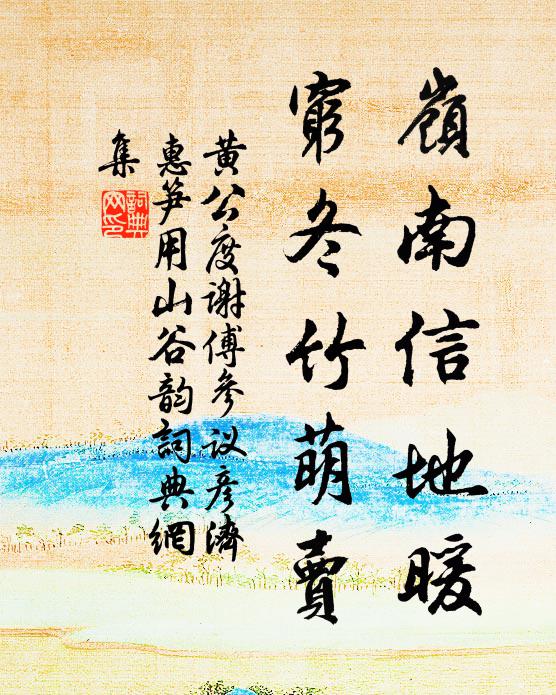 嶺南信地暖
窮冬竹萌賣
黄公度谢傅參议彦濟
惠笋用山谷韵詞典網
集
詞典
网印